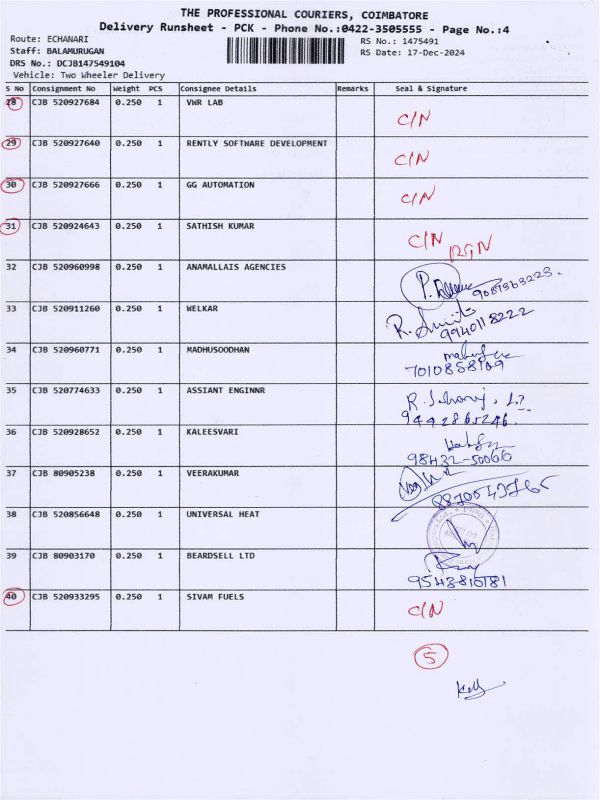 THE PROFESSIONAL COURIERS, COIMBATORE
Delivery Runsheet - PCK - Phone No.:0422-3505555 - Page No.:4
Route: ECHANARI RS No.: 1475491
Staff: BALAMURUGAN RS Date: 17-Dec-2024
DRS No.: DCJB147549104
Vehicle: Two Wheeler Delivery
S No Consignment No Weight PCS Consignee Details Remarks Seal & Signature
28 CJB 520927684 0.250 1 VWR LAB C/N
29 CJB 520927640 0.250 1 RENTLY SOFTWARE DEVELOPMENT C/N
30 CJB 520927666 0.250 1 GG AUTOMATION C/N
31 CJB 520924643 0.250 1 SATHISH KUMAR C/N
32 CJB 520960998 0.250 1 ANAMALLAIS AGENCIES
33 CJB 520911260 0.250 1 WELKAR 9940118222
34 CJB 520960771 0.250 1 MADHUSOODHAN 7010858109
35 CJB 520774633 0.250 1 ASSIANT ENGINNR 9442865246
36 CJB 520928652 0.250 1 KALEESVARI 98432-50066
37 CJB 80905238 0.250 1 VEERAKUMAR
38 CJB 520856648 0.250 1 UNIVERSAL HEAT
39 CJB 80903170 0.250 1 BEARDSELL LTD
40 CJB 520933295 0.250 1 SIVAM FUELS C/N
5